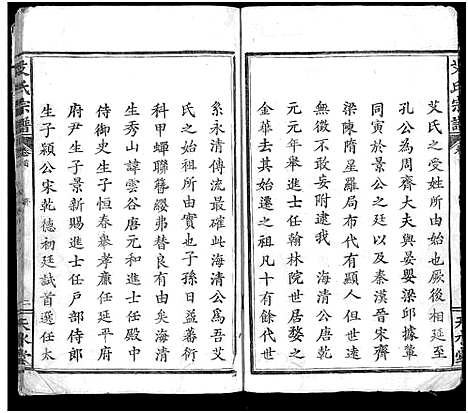 艾氏之受姓所由也厥後相延至
孔公為周齊大夫與晏嬰梁邱據
同寅於景公之廷以及秦漢晉宋
梁陳隋星羅局布代有顯人然遠
無徵不敢妄附逮我 海清公唐乾
元元年舉進士任翰林院世居婺之
金華去其始遷之祖凡十有餘代世
系永清傳流最確此海清公為吾艾
氏之始祖所由實也子孫日益蕃衍
科甲蟬聯簪纓弗替良有由矣海清
生秀山諱雲谷唐元和進士任殿中
侍御史生恒春舉孝廉任延平府
府尹生子景新賜進士任戶部侍郎
生子顈公宋乾德初廷試首選任太
艾氏宗譜
艾氏宗譜
天水堂
天水堂